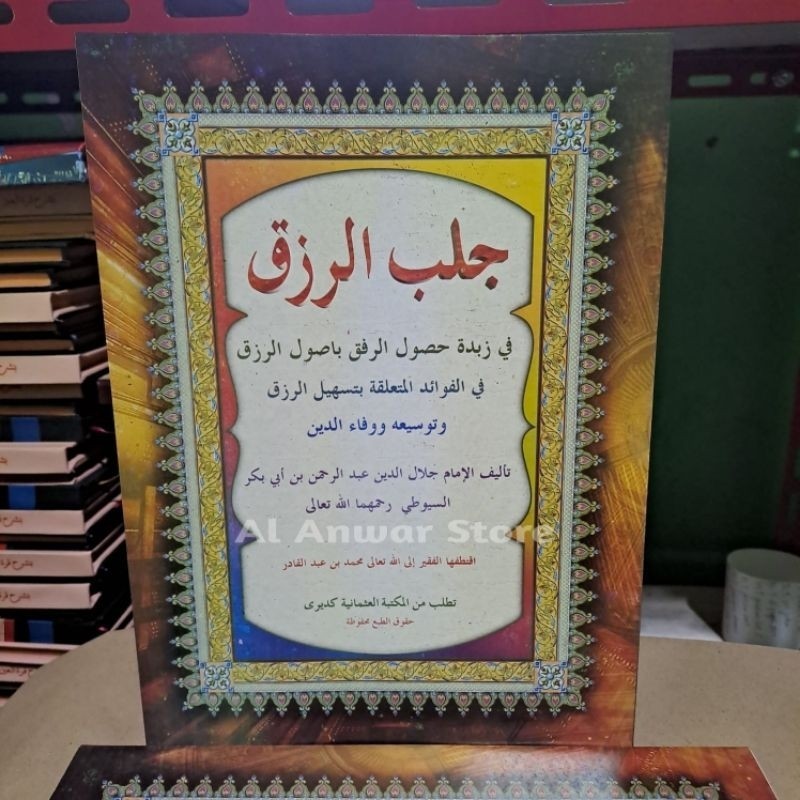 جلب الرزق
في زبدة حصول الرفق باصول الرزق
في الفوائد المتعلقة بتسهيل الرزق
وتوسيعه ووفاء الدين
تأليف الإمام جلال الدين عبد الرحمن بن أبي بكر
السيوطي رحمهما الله تعالى
Al Anwar Store
اقتطفها الفقير إلى الله تعالى محمد بن عبد القادر
تطلب من المكتبة العثمانية كديرى
حقوق الطبع محفوظة